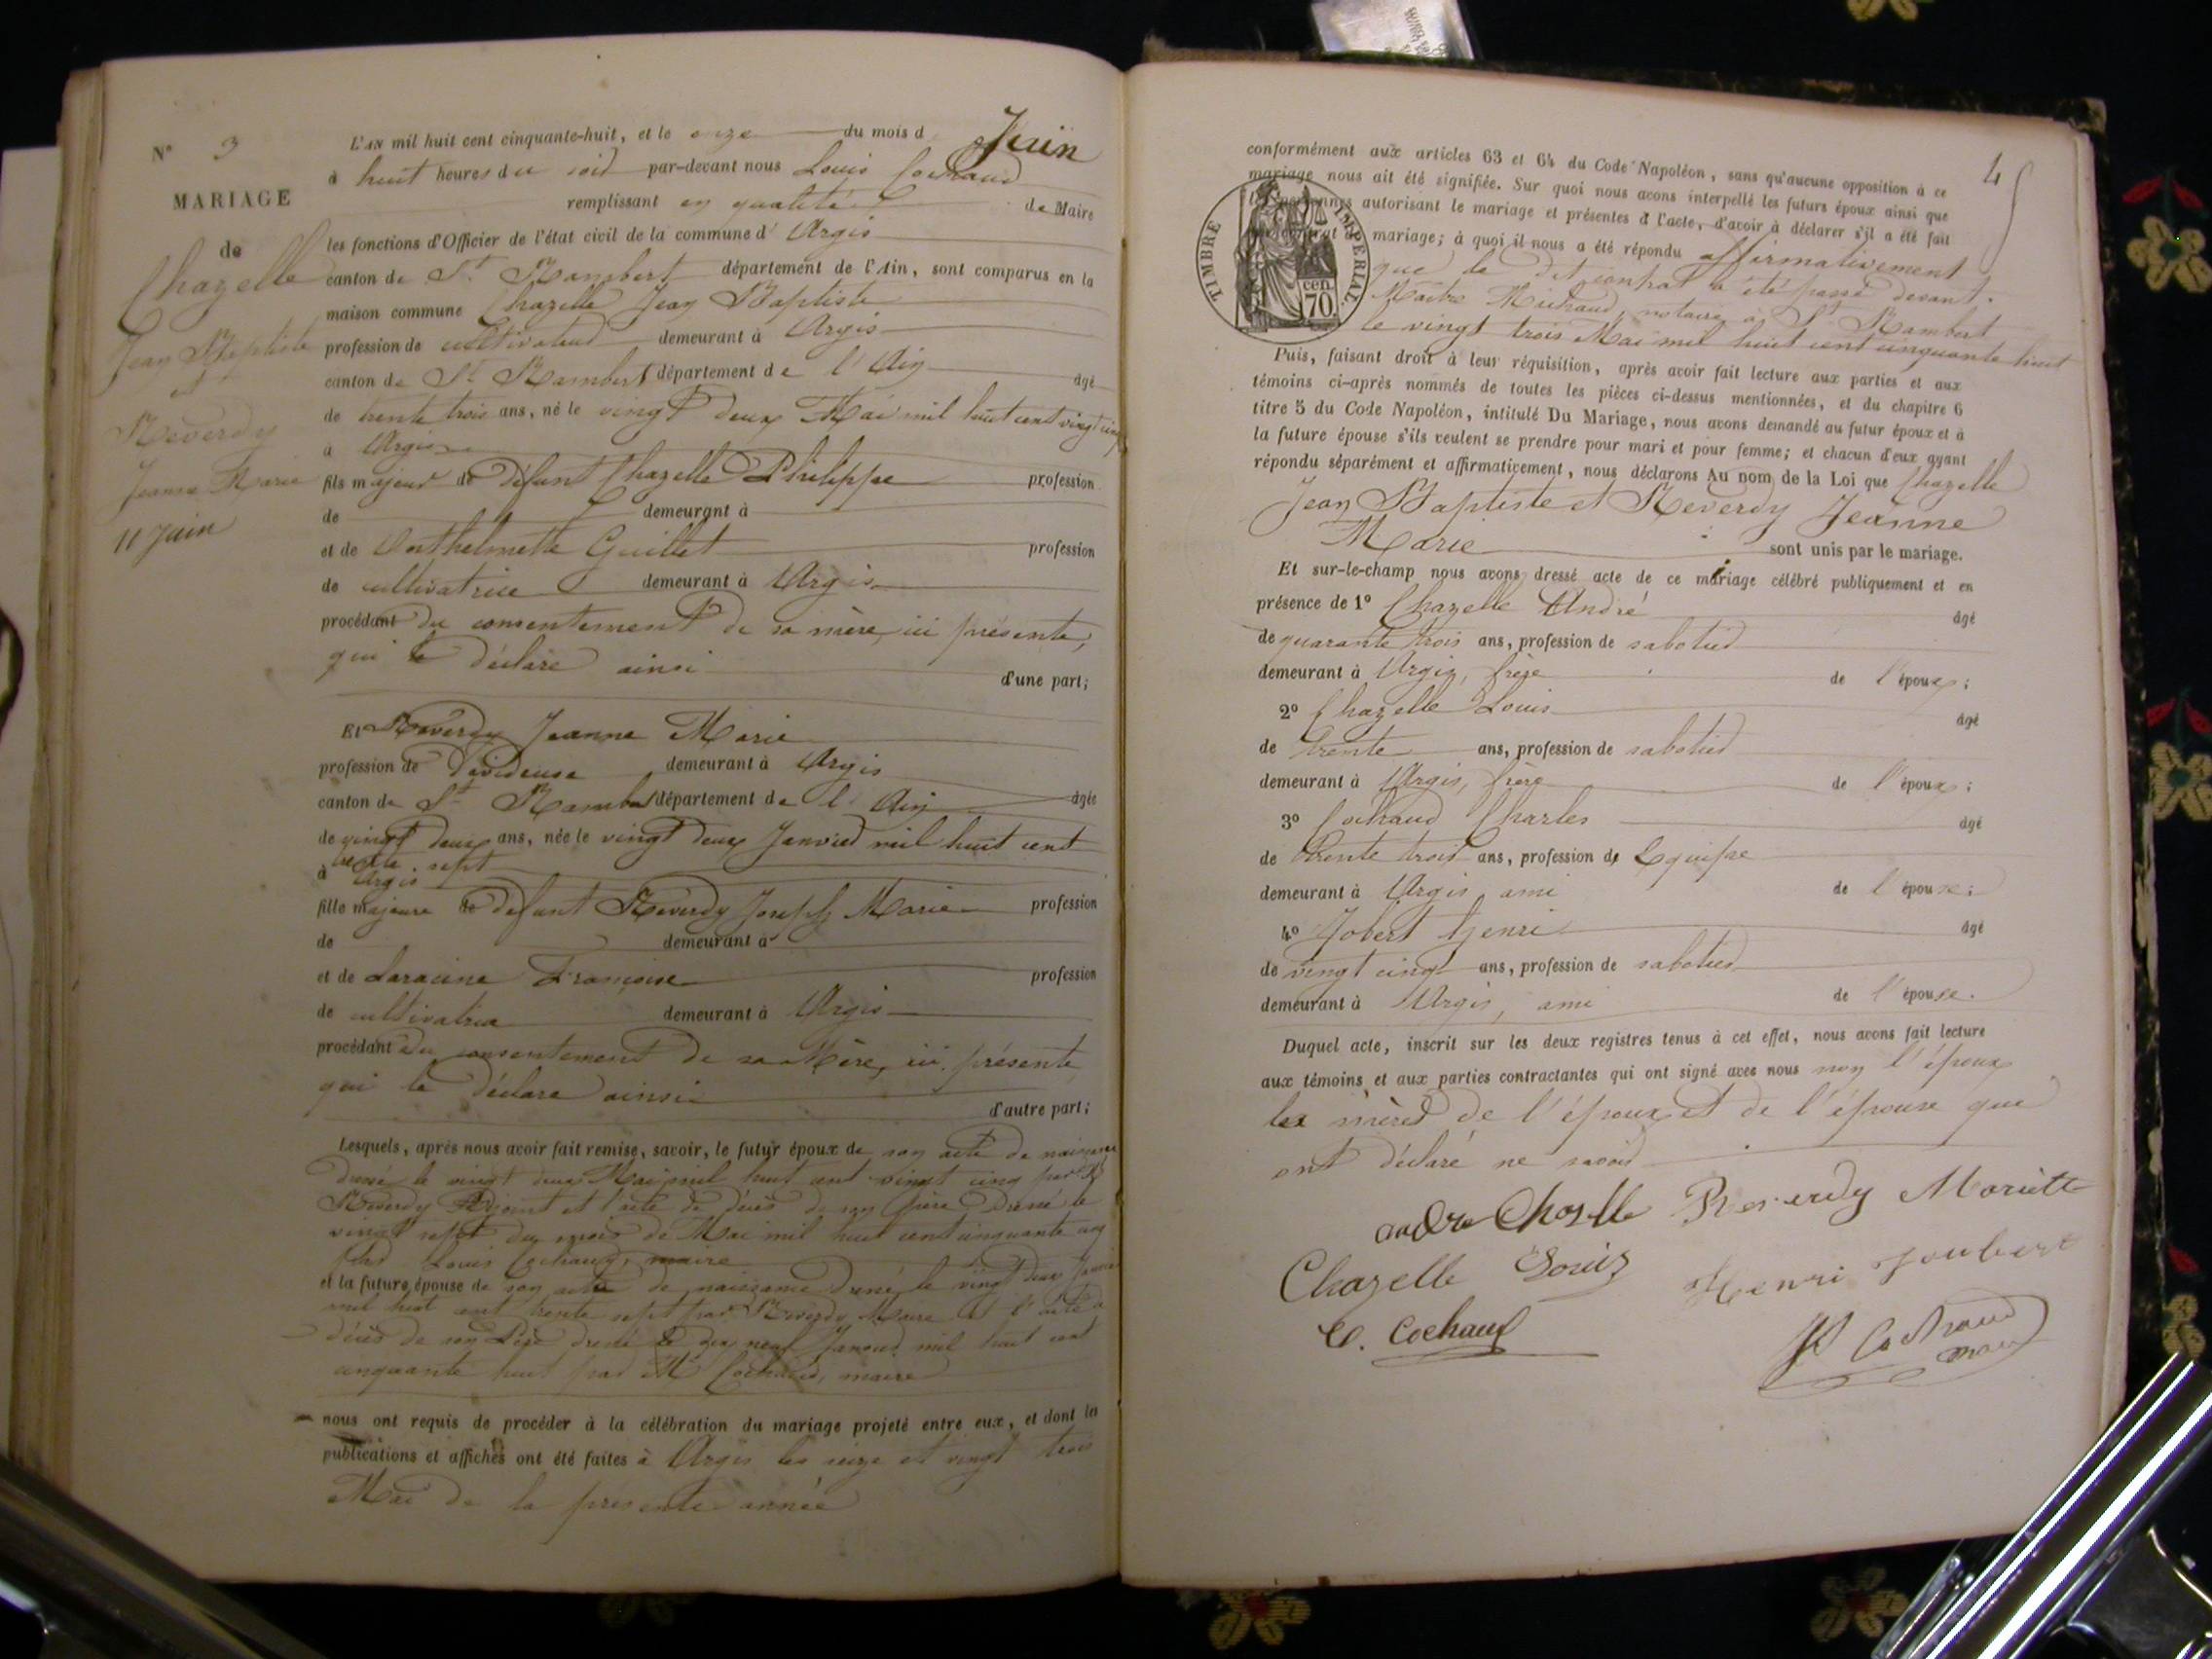 N° 3
MARIAGE
de
Chazelle
Jean Baptiste
et
Reverdy
Jeanne Marie
11 Juin
L'AN mil huit cent cinquante-huit, et le onze du mois d Juin
à huit heures du soir par-devant nous Louis Cochaud
remplissant en qualité de Maire
les fonctions d'Officier de l'état civil de la commune d'Argis
canton de St Rambert département de l'Ain, sont comparus en la
maison commune Chazelle Jean Baptiste
profession de cultivateur demeurant à Argis
canton de St Rambert département de l'Ain âgé
de trente trois ans, né le vingt deux Mai mil huit cent vingt cinq
à Argis
fils majeur de Défunt Chazelle Philippe profession
de demeurant à
et de Barthelmette Guillet profession
de cultivatrice demeurant à Argis
procédant du consentement de sa mère, ici présente,
qui le déclare ainsi
d'une part;
Et Reverdy Jeanne Marie
profession de Dévideuse demeurant à Argis
canton de St Rambert département de l'Ain âgée
de vingt deux ans, née le vingt deux Janvier mil huit cent
trente sept
à Argis
fille majeure de défunt Reverdy Joseph Marie profession
de demeurant à
et de Laracine Françoise profession
de cultivatrice demeurant à Argis
procédant du consentement de sa Mère, ici présente
qui le déclare ainsi
d'autre part;
Lesquels, après nous avoir fait remise, savoir, le futur époux de son acte de naissance
dressé le vingt deux Mai mil huit cent vingt cinq par Mr
Reverdy Adjoint et l'acte de décès de son père dressé le
vingt sept du mois de Mai mil huit cent cinquante
par Louis Cochaud, maire
et la future épouse de son acte de naissance dressé le vingt deux Janvier
mil huit cent trente sept par Mr Reverdy Maire et l'acte de
décès de son Père dressé le dix neuf Janvier mil huit cent
cinquante huit par Mr Cochaud, maire
nous ont requis de procéder à la célébration du mariage projeté entre eux, et dont les
publications et affiches ont été faites à Argis les seize et vingt trois
Mai de la présente année
4
conformément aux articles 63 et 64 du Code Napoléon, sans qu'aucune opposition à ce
mariage nous ait été signifiée. Sur quoi nous avons interpellé les futurs époux ainsi que
les personnes autorisant le mariage et présentes à l'acte, d'avoir à déclarer s'il a été fait
contrat de mariage; à quoi il nous a été répondu affirmativement
que le dit contrat a été passé devant
Maître Michaud, notaire à St Rambert
le vingt trois Mai mil huit cent cinquante huit
TIMBRE IMPERIAL.
cen
70.
Puis, faisant droit à leur réquisition, après avoir fait lecture aux parties et aux
témoins ci-après nommés de toutes les pièces ci-dessus mentionnées, et du chapitre 6
titre 5 du Code Napoléon, intitulé Du Mariage, nous avons demandé au futur époux et à
la future épouse s'ils veulent se prendre pour mari et pour femme; et chacun d'eux ayant
répondu séparément et affirmativement, nous déclarons Au nom de la Loi que Chazelle
Jean Baptiste et Reverdy Jeanne
Marie sont unis par le mariage.
Et sur-le-champ nous avons dressé acte de ce mariage célébré publiquement et en
présence de 1° Chazelle André âgé
de quarante trois ans, profession de sabotier
demeurant à Argis, frère de l'époux;
2° Chazelle Louis âgé
de trente ans, profession de sabotier
demeurant à Argis, frère de l'époux;
3° Cochaud Charles âgé
de trente trois ans, profession de
demeurant à Argis, ami de l'épouse;
4° Jobert Henri âgé
de vingt cinq ans, profession de sabotier
demeurant à Argis, ami de l'épouse.
Duquel acte, inscrit sur les deux registres tenus à cet effet, nous avons fait lecture
aux témoins et aux parties contractantes qui ont signé avec nous non l'époux
les mères de l'époux et de l'épouse que
ont déclaré ne savoir
andre Chaselle Reverdy Mariette
Chazelle Louis Henri Joubert
C. Cochaud
Cochaud
maire